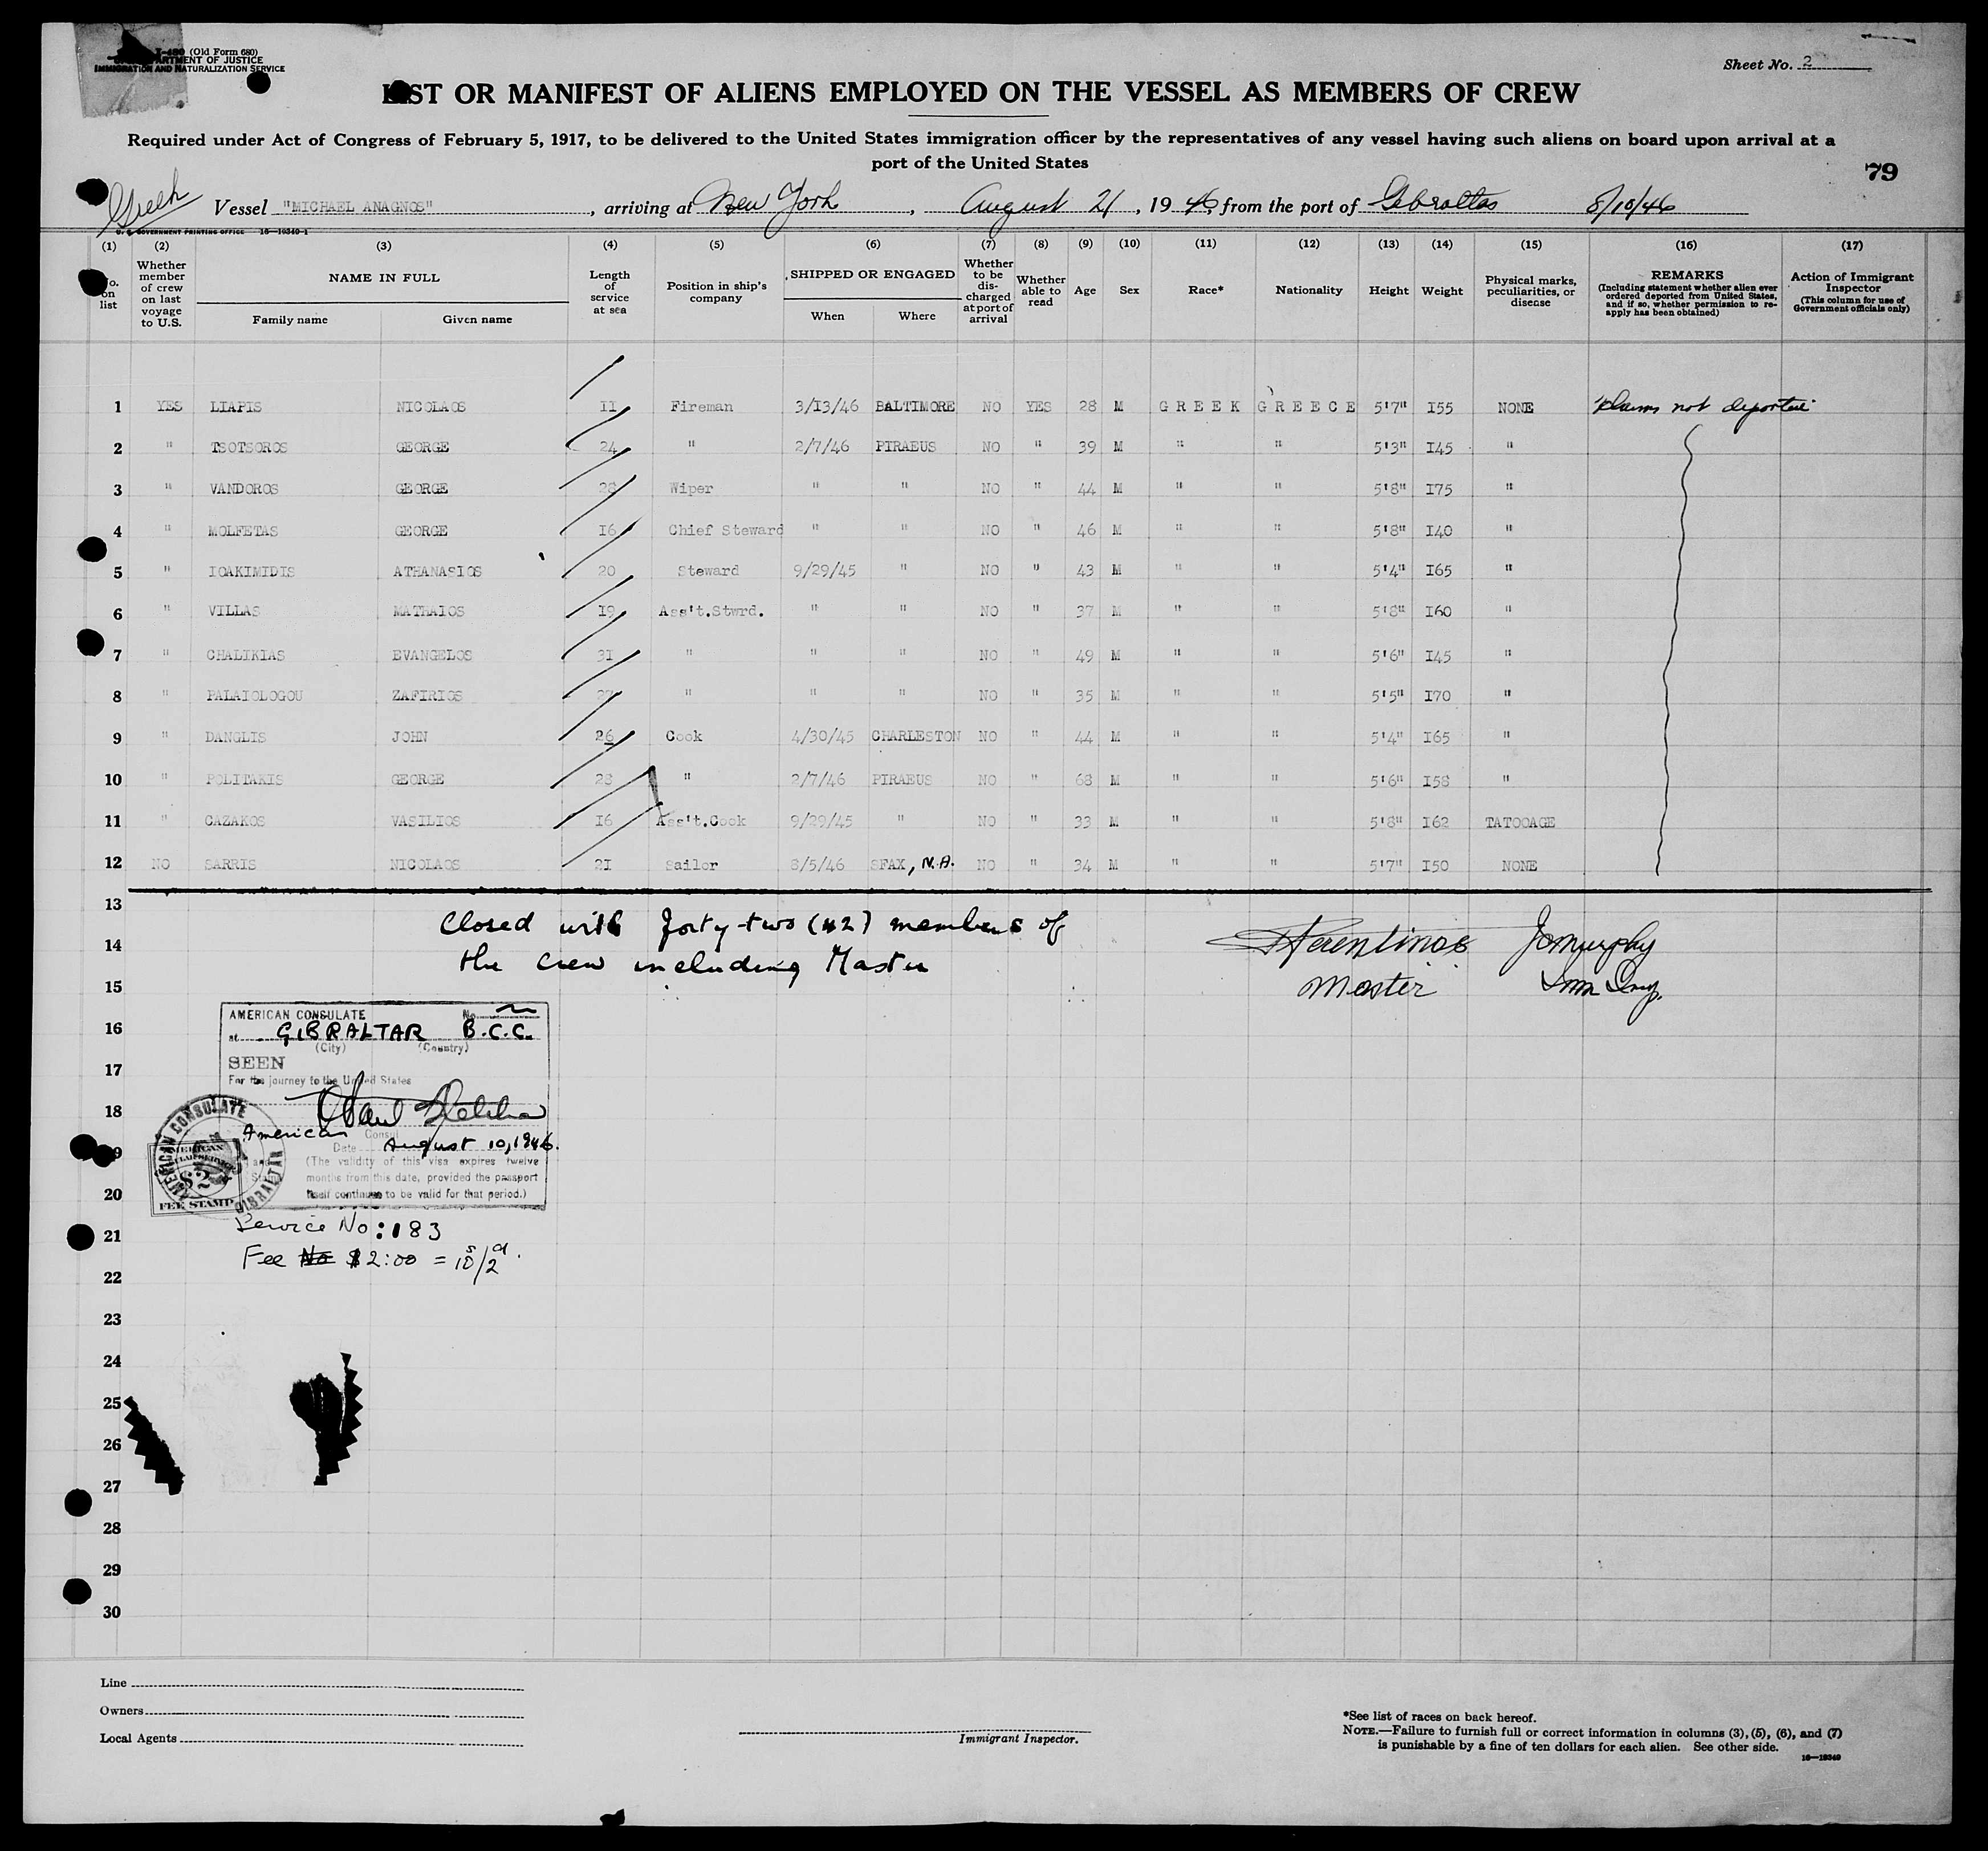 I-480 (Old Form 680)
DEPARTMENT OF JUSTICE
IMMIGRATION AND NATURALIZATION SERVICE
Sheet No. 2
LIST OR MANIFEST OF ALIENS EMPLOYED ON THE VESSEL AS MEMBERS OF CREW
Required under Act of Congress of February 5, 1917, to be delivered to the United States immigration officer by the representatives of any vessel having such aliens on board upon arrival at a
port of the United States
79
Greek Vessel "MICHAEL ANAGNOS", arriving at New York, August 21, 1946, from the port of Gibraltar 8/10/46
U. S. GOVERNMENT PRINTING OFFICE 16—19340-1
(1) (2) (3) (4) (5) (6) (7) (8) (9) (10) (11) (12) (13) (14) (15) (16) (17)
No. on list
Whether member of crew on last voyage to U.S.
NAME IN FULL
Family name Given name
Length of service at sea
Position in ship's company
SHIPPED OR ENGAGED
When Where
Whether to be discharged at port of arrival
Whether able to read
Age
Sex
Race*
Nationality
Height
Weight
Physical marks, peculiarities, or disease
REMARKS
(Including statement whether alien ever ordered deported from United States, and if so, whether permission to reapply has been obtained)
Action of Immigrant Inspector
(This column for use of Government officials only)
1 YES LIAPIS NICOLAOS 11 Fireman 3/13/46 BALTIMORE NO YES 28 M GREEK GREECE 5'7" 155 NONE claims not deported
2 " TSOTSOROS GEORGE 24 " 2/7/46 PIRAEUS NO " 39 M " " 5'3" 145 "
3 " VANDOROS GEORGE 28 Wiper " " NO " 44 M " " 5'8" 175 "
4 " MOLFETAS GEORGE 16 Chief Steward " " NO " 46 M " " 5'8" 140 "
5 " IOAKIMIDIS ATHANASIOS 20 Steward 9/29/45 " NO " 43 M " " 5'4" 165 "
6 " VILLAS MATHAIOS 19 Ass't.Stwrd. " " NO " 37 M " " 5'8" 160 "
7 " CHALIKIAS EVANGELOS 31 " " " NO " 49 M " " 5'6" 145 "
8 " PALAIOLOGOU ZAFIRIOS " " " NO " 35 M " " 5'5" 170 "
9 " DANGLIS JOHN 26 Cook 4/30/45 CHARLESTON NO " 44 M " " 5'4" 165 "
10 " POLITAKIS GEORGE 28 " 2/7/46 PIRAEUS NO " 68 M " " 5'6" 158 "
11 " CAZAKOS VASILIOS 16 Ass't.Cook 9/29/45 " NO " 33 M " " 5'8" 162 TATOOAGE
12 NO SARRIS NICOLAOS 21 Sailor 8/5/46 SFAX, N.A. NO " 34 M " " 5'7" 150 NONE
13
Closed with forty-two (42) members of
14
the crew including Master
Master
JCMurphy
Imm Insp.
15
AMERICAN CONSULATE No.
at GIBRALTAR B.C.C.
(City) (Country)
16
SEEN
17
For the journey to the United States
18
American Consul
Date August 10, 1946.
19
(The validity of this visa expires twelve
months from this date, provided the passport
itself continues to be valid for that period.)
AMERICAN CONSULATE GIBRALTAR
$2
FEE STAMP
20
21
Service No: 183
Fee No $2:00 = 10s/2d.
22
23
24
25
26
27
28
29
30
Line
Owners
Local Agents
Immigrant Inspector.
*See list of races on back hereof.
NOTE.—Failure to furnish full or correct information in columns (3), (5), (6), and (7)
is punishable by a fine of ten dollars for each alien. See other side.
16—19340